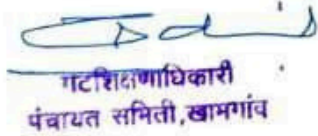 गटशिक्षणाधिकारी
पंचायत समिती,खामगांव